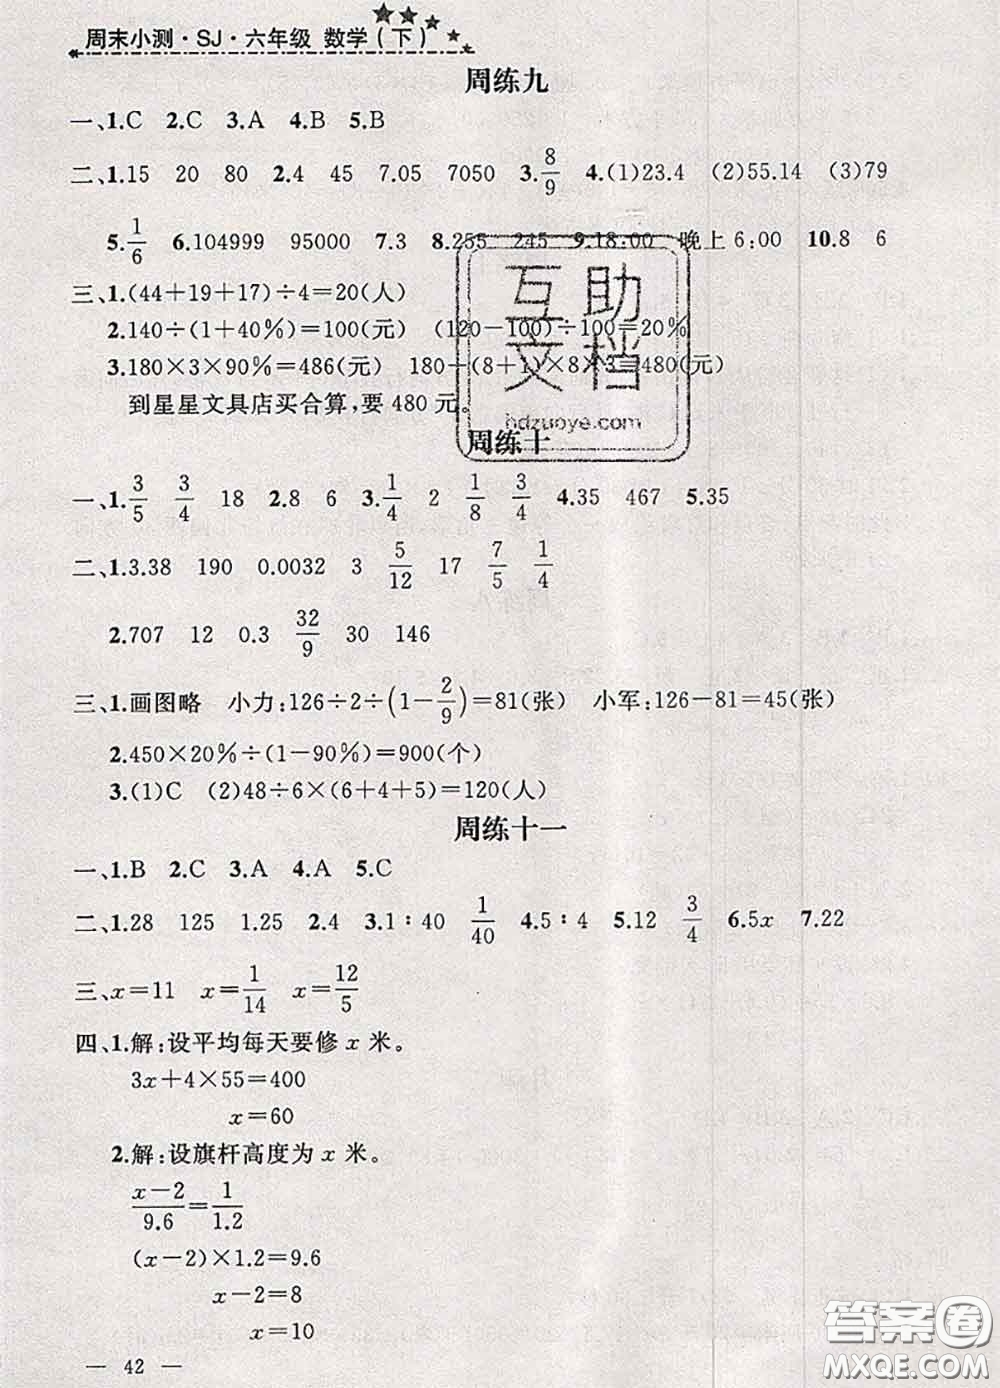 周末小测·SJ·六年级 数学(下)
周练九
一、1.C 2.C 3.A 4.B 5.B
二、1.15 20 80 2.4 45 7.05 7050 3.8/9 4.(1)23.4 (2)55.14 (3)79
5.1/6 6.104999 95000 7.3 8.255 245 9.18:00 晚上6:00 10.8 6
三、1.(44+19+17)÷4=20(人)
2.140÷(1+40%)=100(元) (120-100)÷100=20%
3.180×3×90%=486(元) 180÷(8+1)×8×3=480(元)
到星星文具店买合算,要480元。
互助文档
hdzuoye.com
周练十
一、1.3/5 3/4 18 2.8 6 3.1/4 2 1/8 3/4 4.35 467 5.35
二、1.3.38 190 0.0032 3 5/12 17 7/5 1/4
2.707 12 0.3 32/9 30 146
三、1.画图略 小力:126÷2÷(1-2/9)=81(张) 小军:126-81=45(张)
2.450×20%÷(1-90%)=900(个)
3.(1)C (2)48÷6×(6+4+5)=120(人)
周练十一
一、1.B 2.C 3.A 4.A 5.C
二、1.28 125 1.25 2.4 3.1∶40 1/40 4.5∶4 5.12 3/4 6.5x 7.22
三、x=11 x=1/14 x=12/5
四、1.解:设平均每天要修x米。
3x+4×55=400
x=60
2.解:设旗杆高度为x米。
(x-2)/9.6=1/1.2
(x-2)×1.2=9.6
x-2=8
x=10
— 42 —
答案圈
MXQE.COM